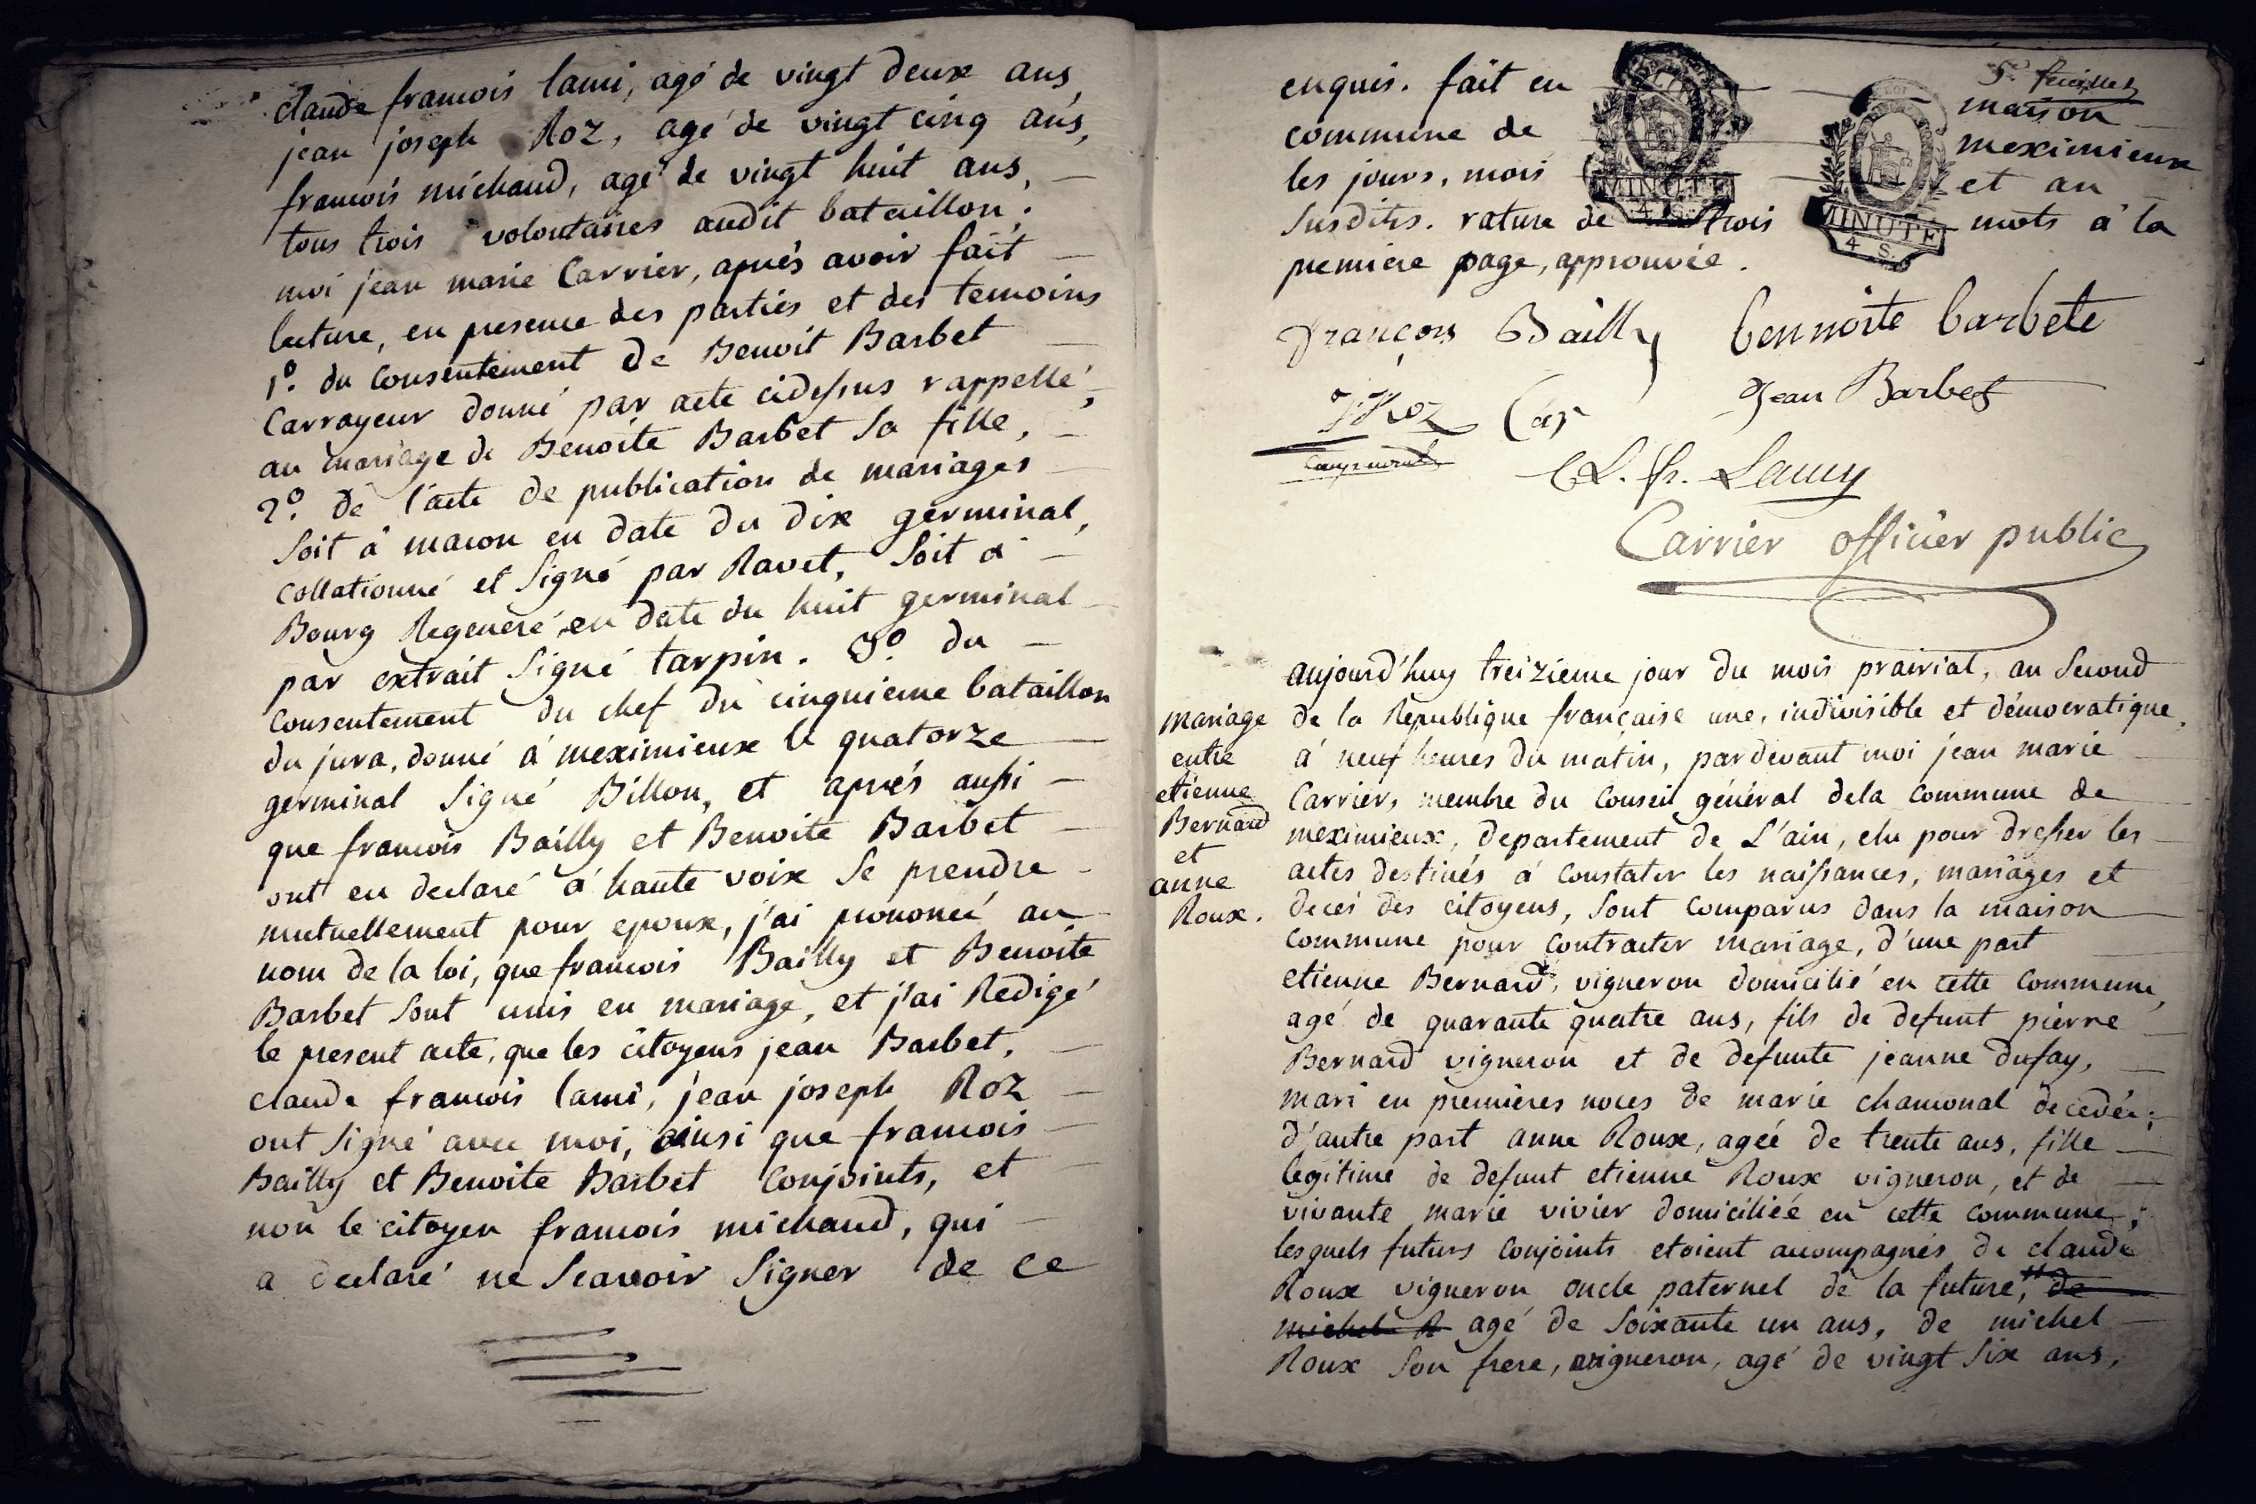 claude francois lami, agé de vingt deux ans,
jean joseph Roz, agé de vingt cinq ans,
francois michaud, agé de vingt huit ans,
tous trois volontaires audit bataillon.
moi jean marie Carrier, aprés avoir fait
lecture, en presence des parties et des temoins
1º. du consentement de Benoit Barbet
Carrayeur donné par acte cidessus rappellé,
au mariage de Benoite Barbet sa fille,
2º. de l'acte de publication de mariages
soit à macon en date du dix germinal,
collationné et signé par Ravet, soit à
Bourg Regeneré en date du huit germinal
par extrait signé tarpin. 3º. du
consentement du chef du cinquieme bataillon
du jura, donné à meximieux le quatorze
germinal signé Billon, et aprés aussi
que francois Bailly et Benoite Barbet
ont eu declaré à haute voix se prendre
mutuellement pour epoux, j'ai prononcé au
nom de la loi, que francois Bailly et Benoite
Barbet sont unis en mariage, et j'ai Redigé
le present acte, que les citoyens jean Barbet,
claude francois lami, jean joseph Roz
ont signé avec moi, ainsi que francois
Bailly et Benoite Barbet conjoints, et
non le citoyen francois michaud, qui
a declaré ne scavoir signer de ce
5e. feuillet
enquis. fait en maison
commune de meximieux
les jours, mois et an
susdits. rature de trois mots à la
premiere page, approuvée.
MINUTE
4 S.
MINUTE
4 S.
François Bailly bennoite barbete
JJRoz Jean Barbet
Cl. fr. Lamy
Carrier officier public
mariage
entre
etienne
Bernard
et
anne
Roux.
aujourd'huy treizieme jour du mois prairial, an second
de la République française une, indivisible et démocratique,
à neuf heures du matin, pardevant moi jean marie
Carrier, membre du Conseil général dela commune de
meximieux, departement de L'ain, elu pour dresser les
actes destinés à constater les naissances, mariages et
decés des citoyens, sont comparus dans la maison
commune pour contracter mariage, d'une part
etienne Bernard, vigneron domicilié en cette commune,
agé de quarante quatre ans, fils de defunt pierre
Bernard vigneron et de defunte jeanne dufay,
mari en premieres noces de marie chamonal decedée;
d'autre part anne Roux, ageé de trente ans, fille
legitime de defunt etienne Roux vigneron, et de
vivante marie vivier domiciliée en cette commune;
lesquels futurs conjoints etoient accompagnés de claude
Roux vigneron oncle paternel de la future, de
michel R agé de soixante un ans, de michel
Roux son frere, vigneron, agé de vingt six ans,